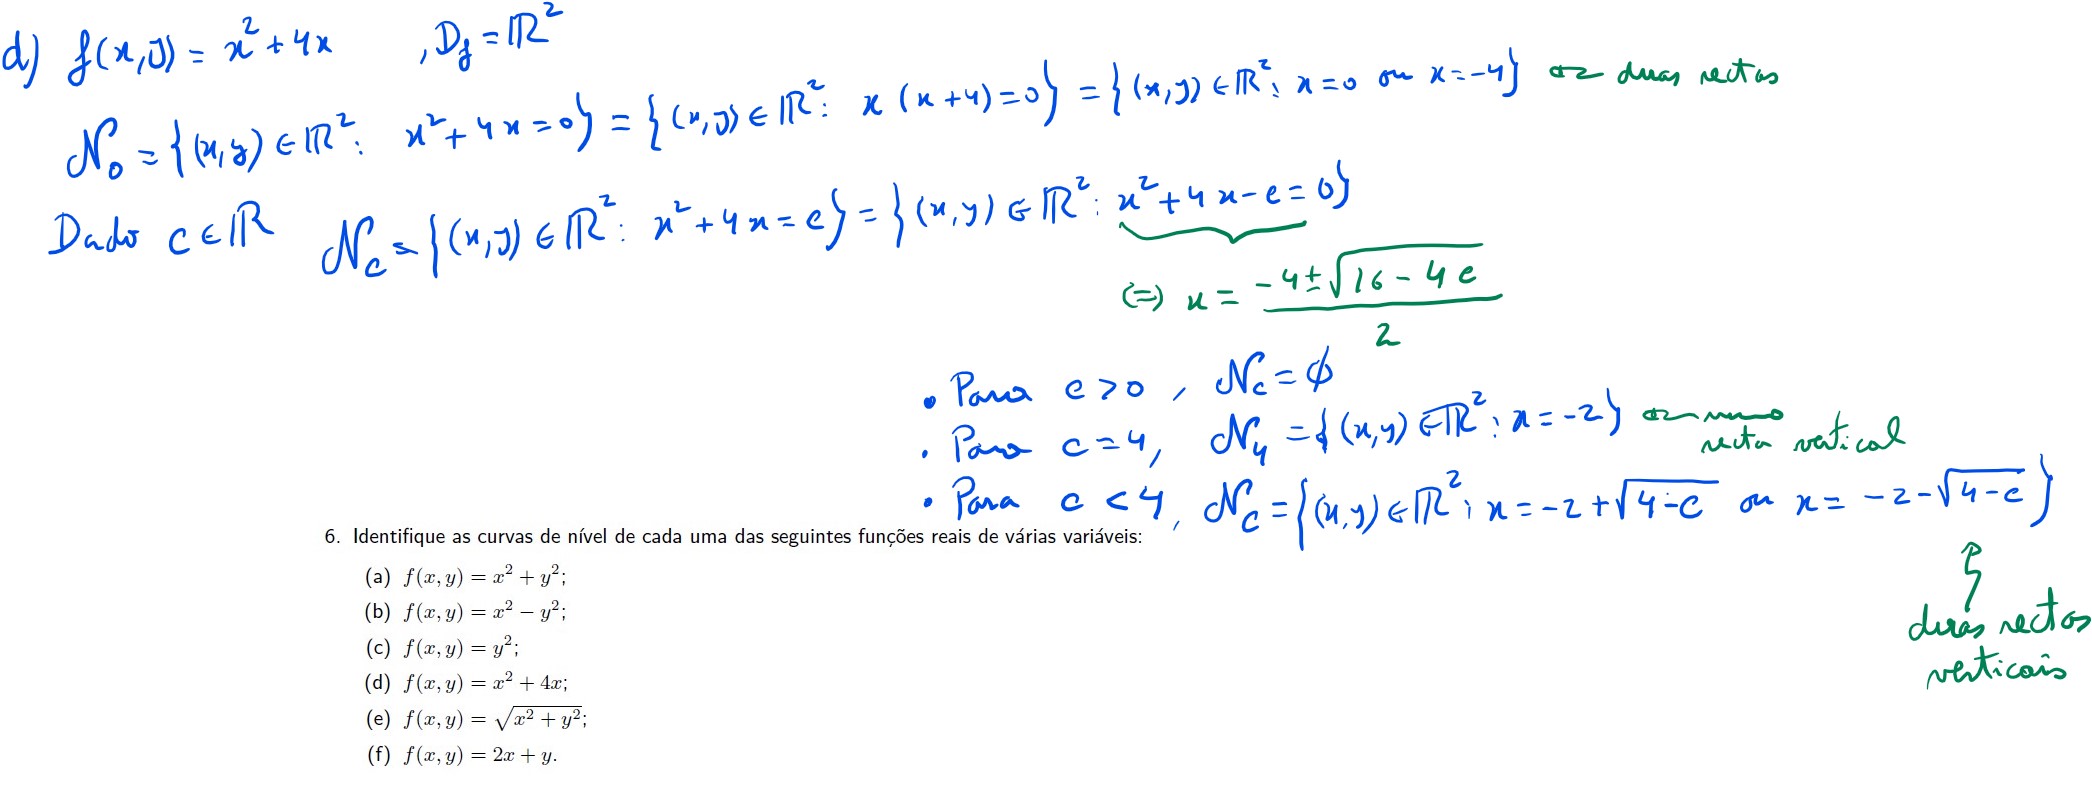 d) f(x,y) = x² + 4x , D_f = ℝ²
N₀ = {(x,y) ∈ ℝ² : x² + 4x = 0} = {(x,y) ∈ ℝ² : x (x+4) = 0} = {(x,y) ∈ ℝ² : x = 0 ou x = -4} ← duas rectas
Dado c ∈ ℝ N_c = {(x,y) ∈ ℝ² : x² + 4x = c} = {(x,y) ∈ ℝ² : x² + 4x - c = 0}
(=) x = (-4 ± √(16 - 4c)) / 2
• Para c > 0 , N_c = ∅
• Para c = 4, N₄ = {(x,y) ∈ ℝ² : x = -2} ← uma
recta vertical
• Para c < 4, N_c = {(x,y) ∈ ℝ² : x = -2 + √(4-c) ou x = -2 - √(4-c)}
duas rectas
verticais
6. Identifique as curvas de nível de cada uma das seguintes funções reais de várias variáveis:
(a) f(x, y) = x² + y²;
(b) f(x, y) = x² − y²;
(c) f(x, y) = y²;
(d) f(x, y) = x² + 4x;
(e) f(x, y) = √(x² + y²);
(f) f(x, y) = 2x + y.